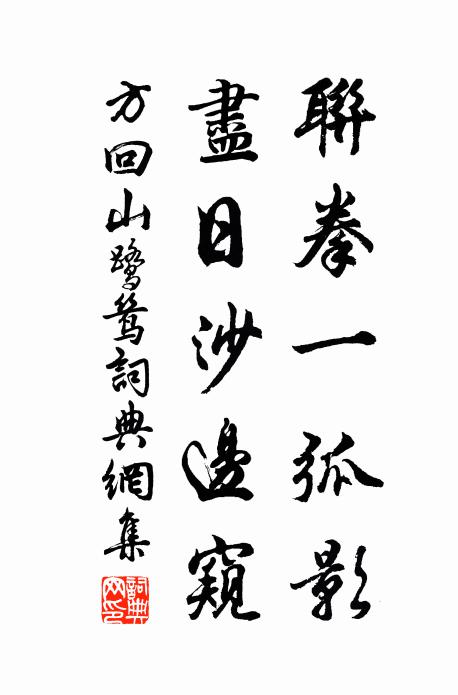 聯拳一孤影
盡日沙邊窺
方回山鷺鷥詞典網集
詞典網印